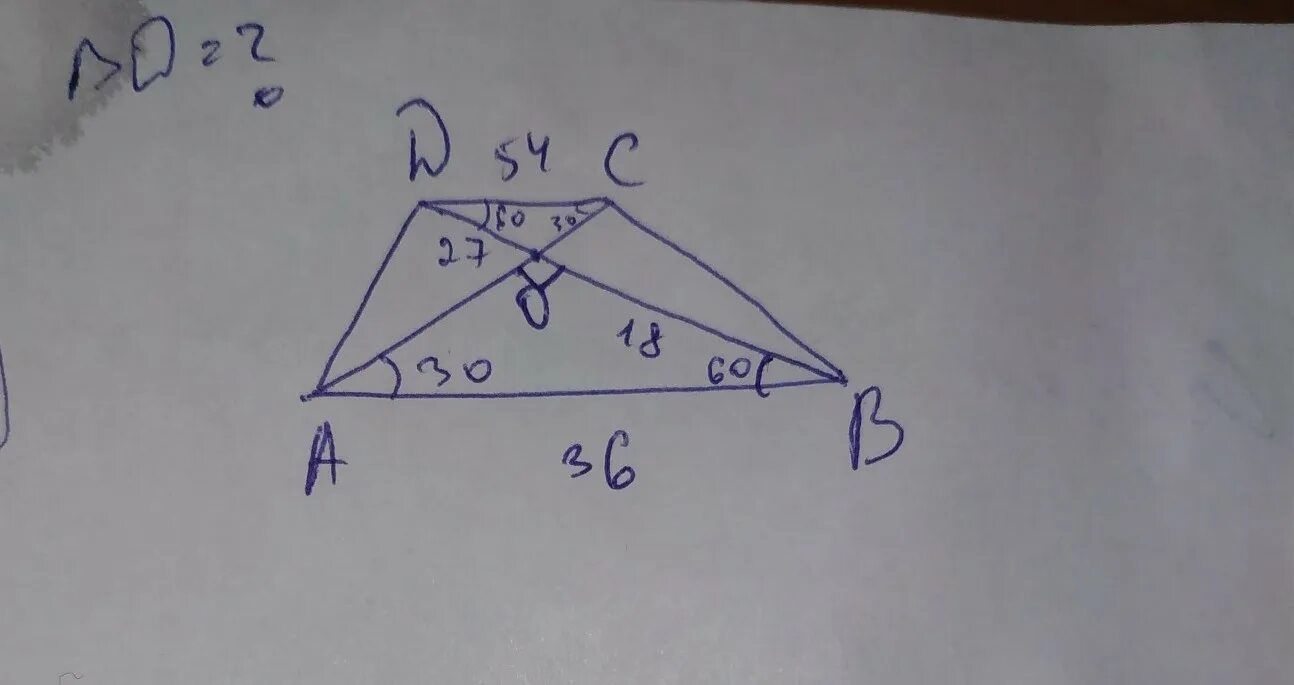 BD = ?
D 54 C
60 30
27
O
18
30 60
A 36 B